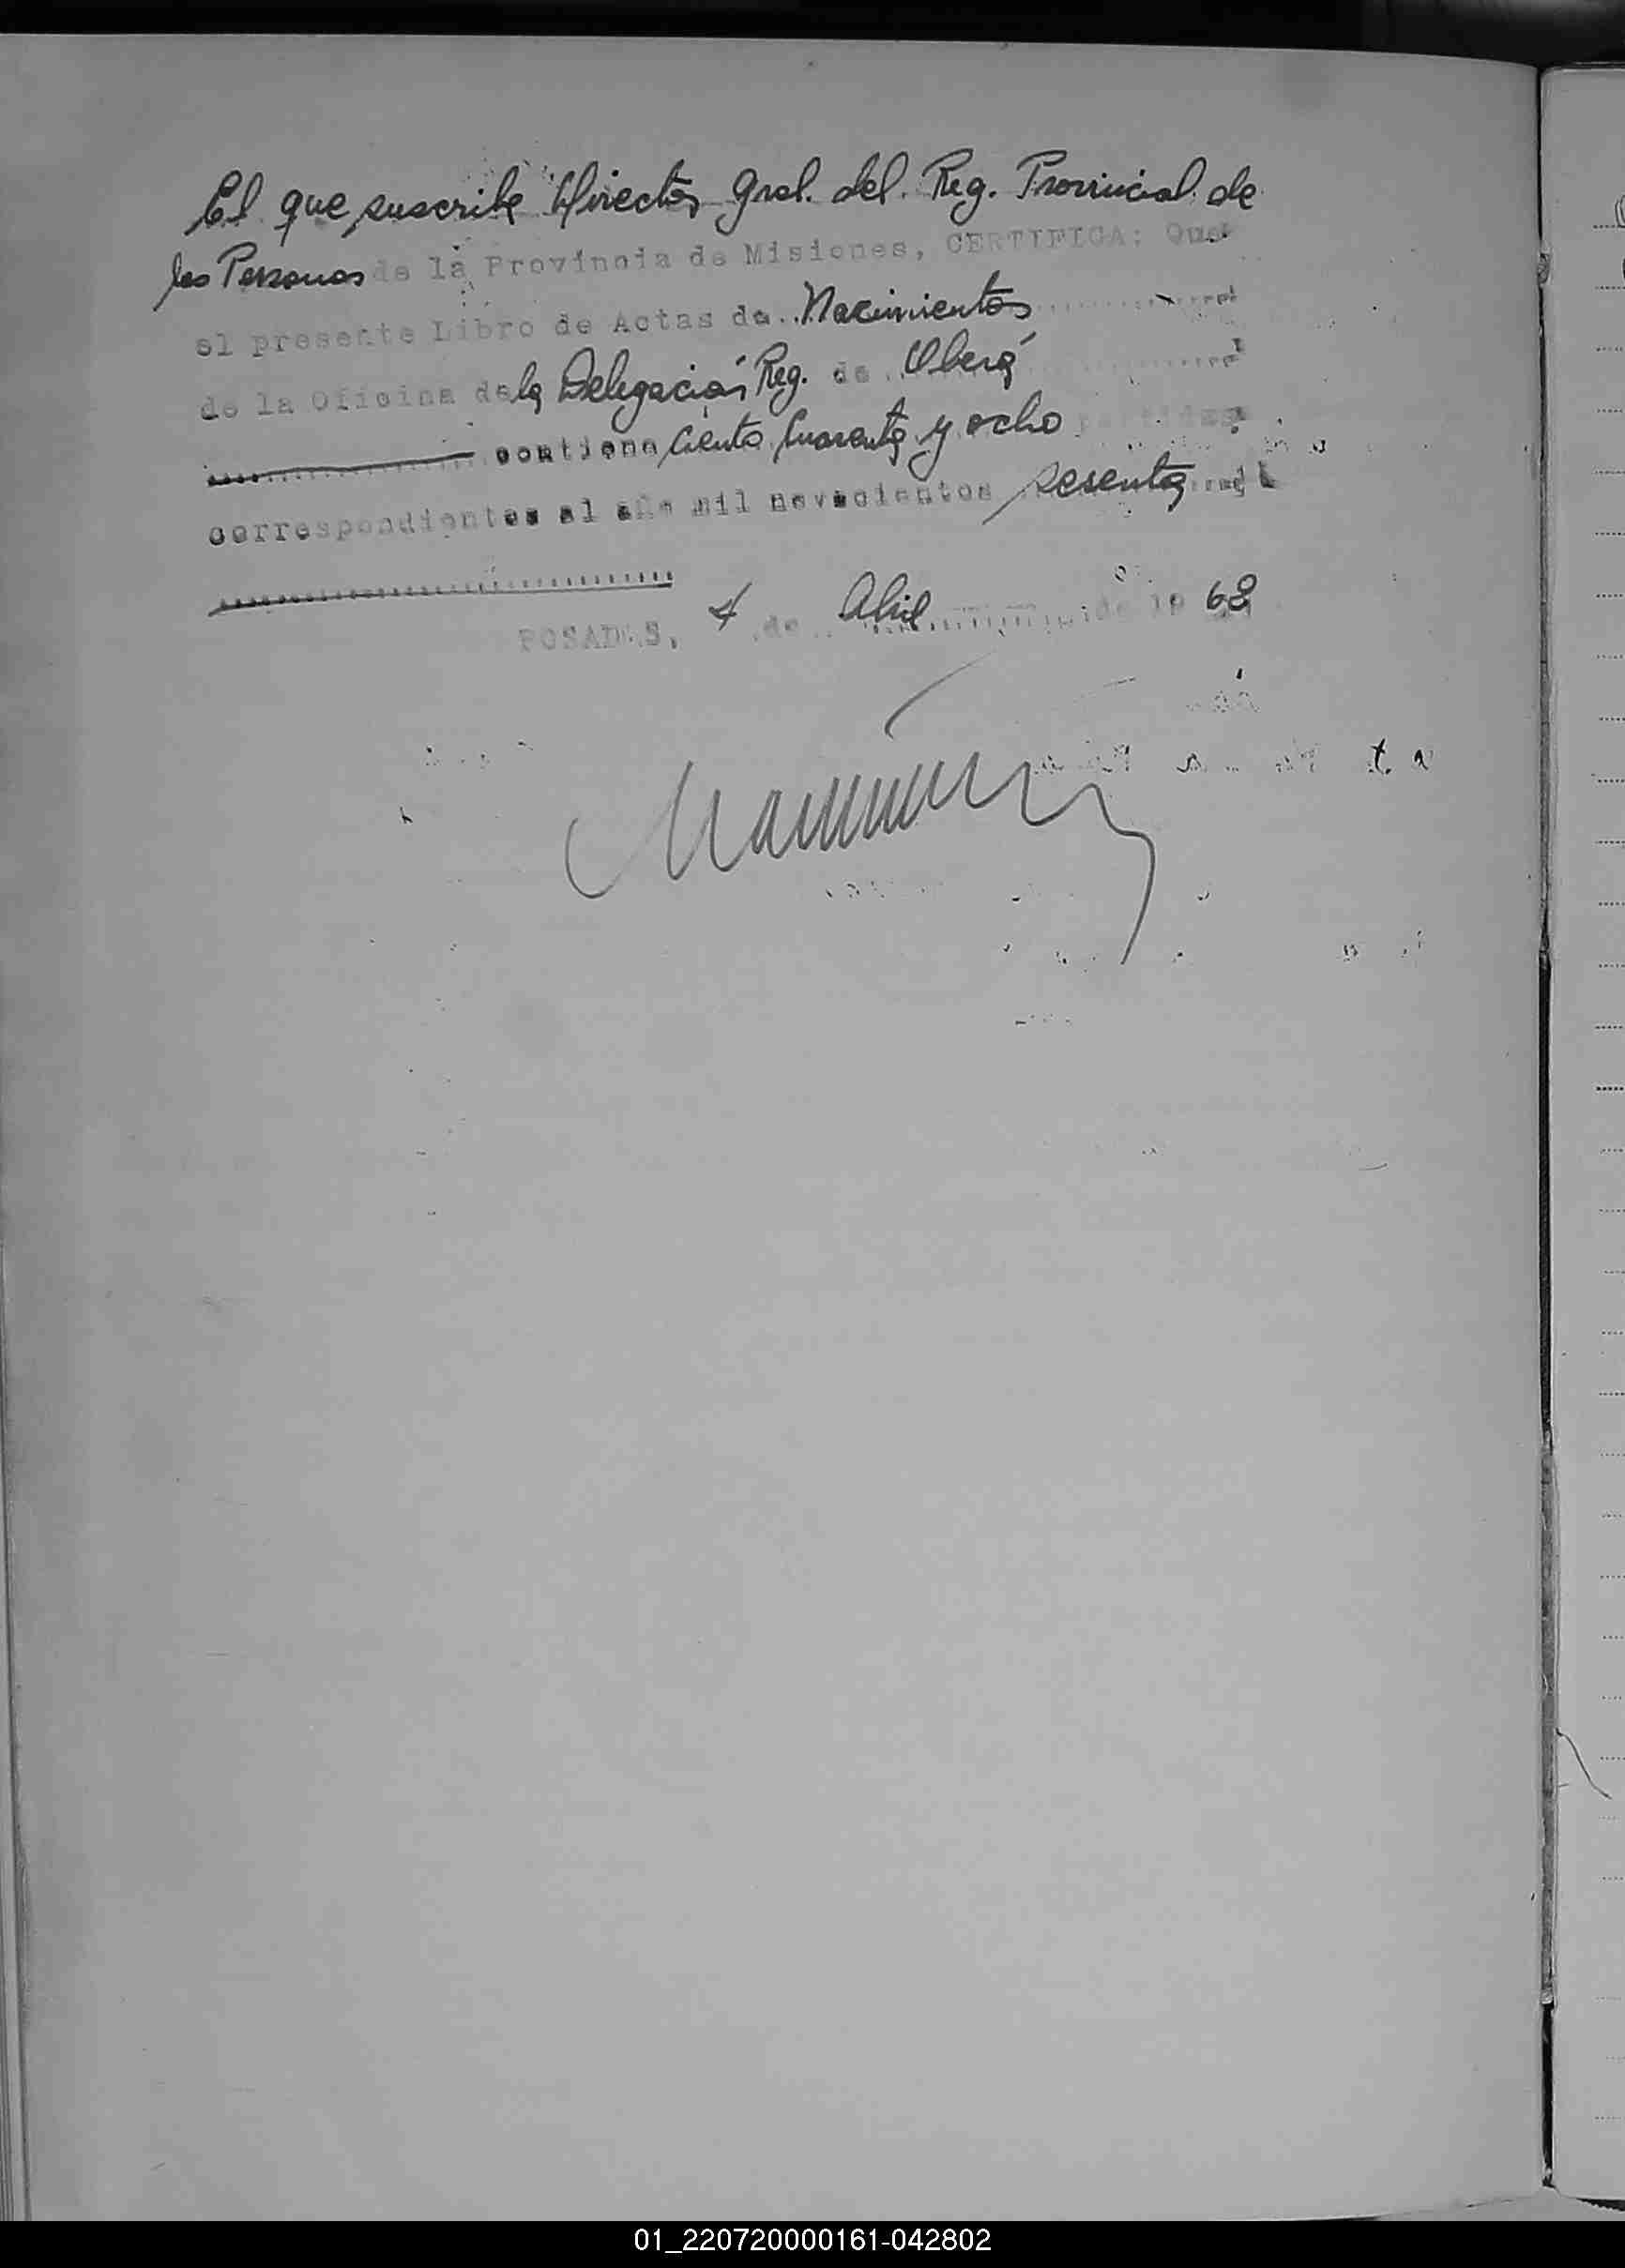 El que suscribe Director Gral. del. Reg. Provincial de
las Personas de la Provincia de Misiones, CERTIFICA: Que
el presente Libro de Actas de Nacimientos
de la Oficina de la Delegación Reg. de Oberá
contiene ciento cuarenta y ocho partidas
correspondientes al año mil novecientos sesenta
POSADAS, 4 de Abril de 19 68
01_220720000161-042802